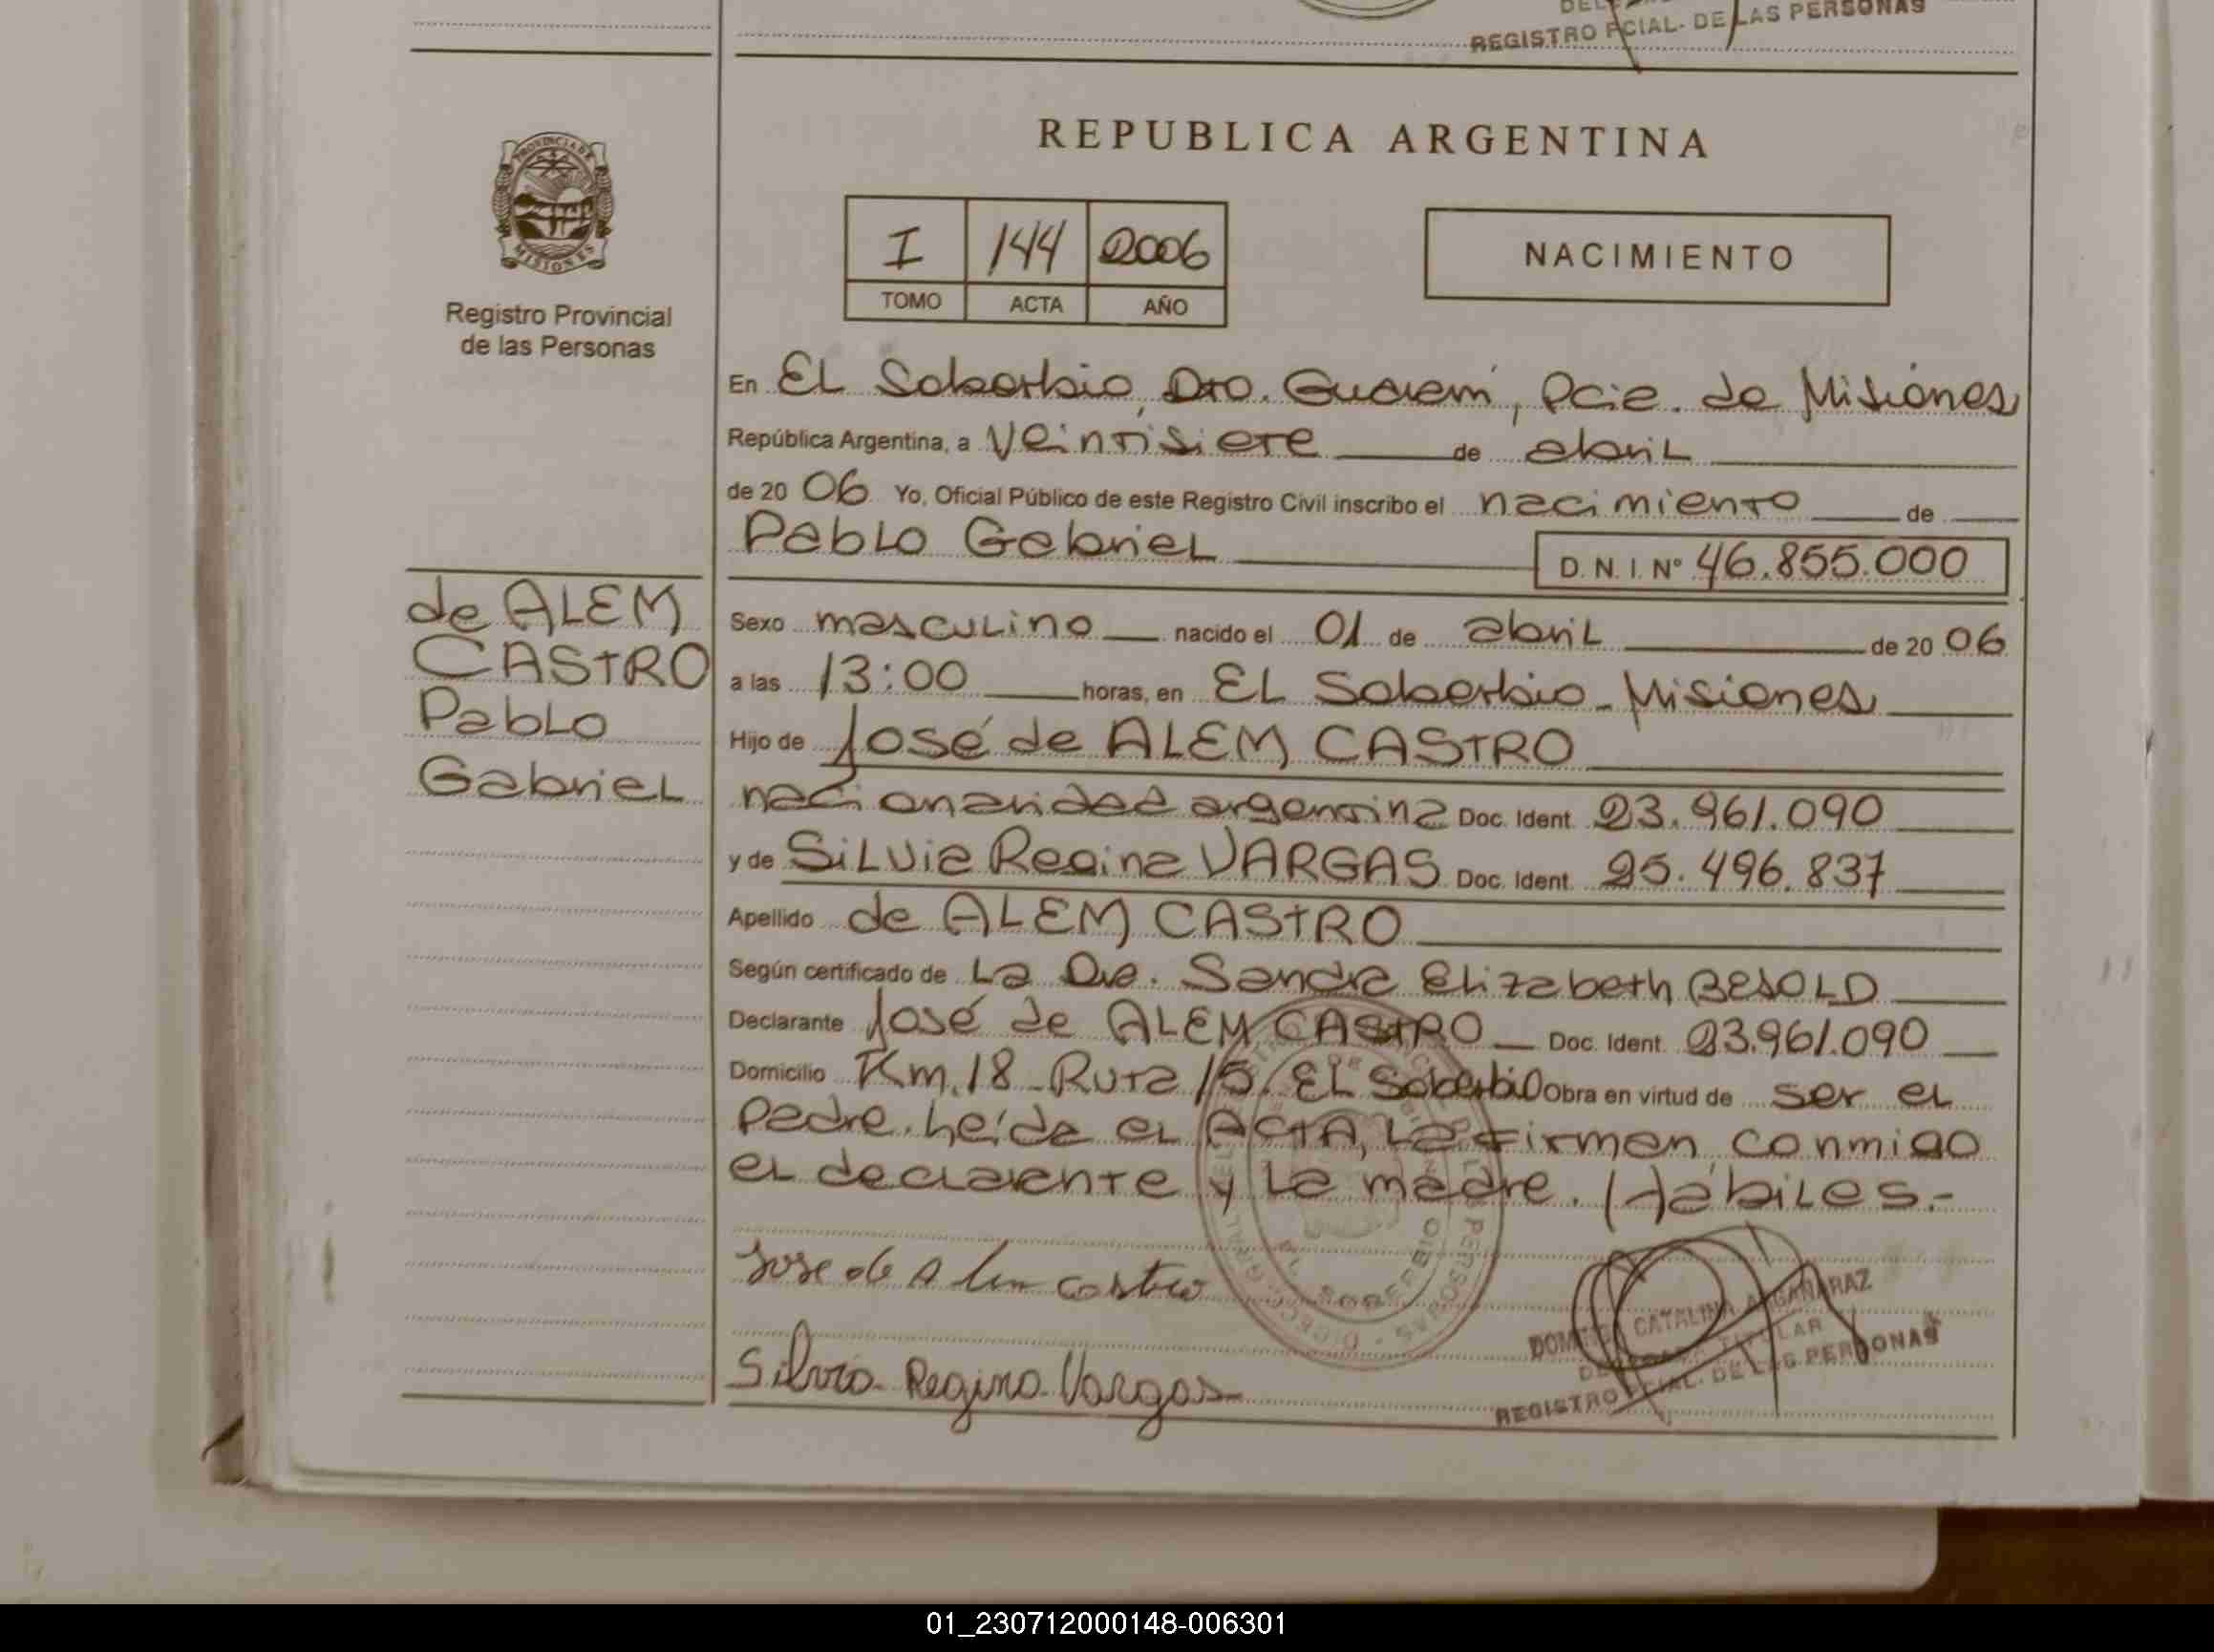 REGISTRO PCIAL. DE LAS PERSONAS
PROVINCIA DE
MISIONES
Registro Provincial
de las Personas
REPUBLICA ARGENTINA
I 144 2006
TOMO ACTA AÑO
NACIMIENTO
En EL Soberbio, Dto. Guaraní, Pcia. de Misiones
República Argentina, a Veintisiete de abril
de 20 06 Yo, Oficial Público de este Registro Civil inscribo el nacimiento de
Pablo Gabriel D. N. I. Nº 46.855.000
de ALEM
CASTRO
Pablo
Gabriel
Sexo masculino nacido el 01 de abril de 20 06
a las 13:00 horas, en EL Soberbio - Misiones
Hijo de José de ALEM CASTRO
nacionalidad argentina Doc. Ident. 23.961.090
y de Silvia Regina VARGAS Doc. Ident. 25.496.837
Apellido de ALEM CASTRO
Según certificado de La Dra. Sandra Elizabeth BESOLD
Declarante José de ALEM CASTRO Doc. Ident. 23.961.090
Domicilio Km. 18 - Ruta 15. EL Soberbio Obra en virtud de ser el
padre. Leída el ACTA, La firman conmigo
el declarante y La madre. Hábiles.-
Jose de Alem castro
Silvia Regina Vargas
EL SOBERBIO
CATALINA ARGAÑARAZ
DELEGADA TITULAR
REGISTRO PCIAL. DE LAS PERSONAS
01_230712000148-006301